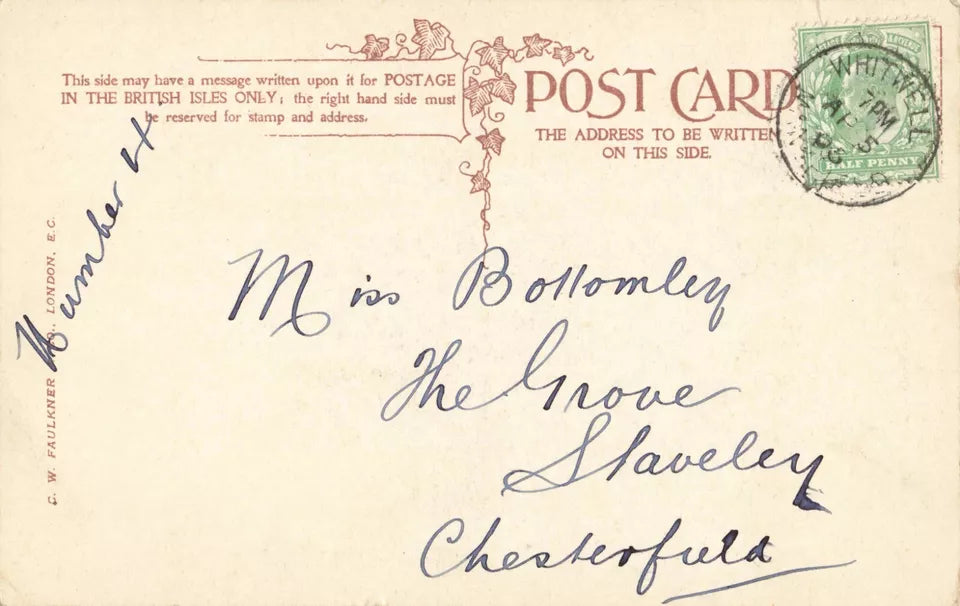 This side may have a message written upon it for POSTAGE
IN THE BRITISH ISLES ONLY; the right hand side must
be reserved for stamp and address.
POST CARD
THE ADDRESS TO BE WRITTEN
ON THIS SIDE.
WHITWELL
7PM
5
HALF PENNY
Number 4
C. W. FAULKNER LONDON, E.C.
Miss Bottomley
The Grove
Staveley
Chesterfield